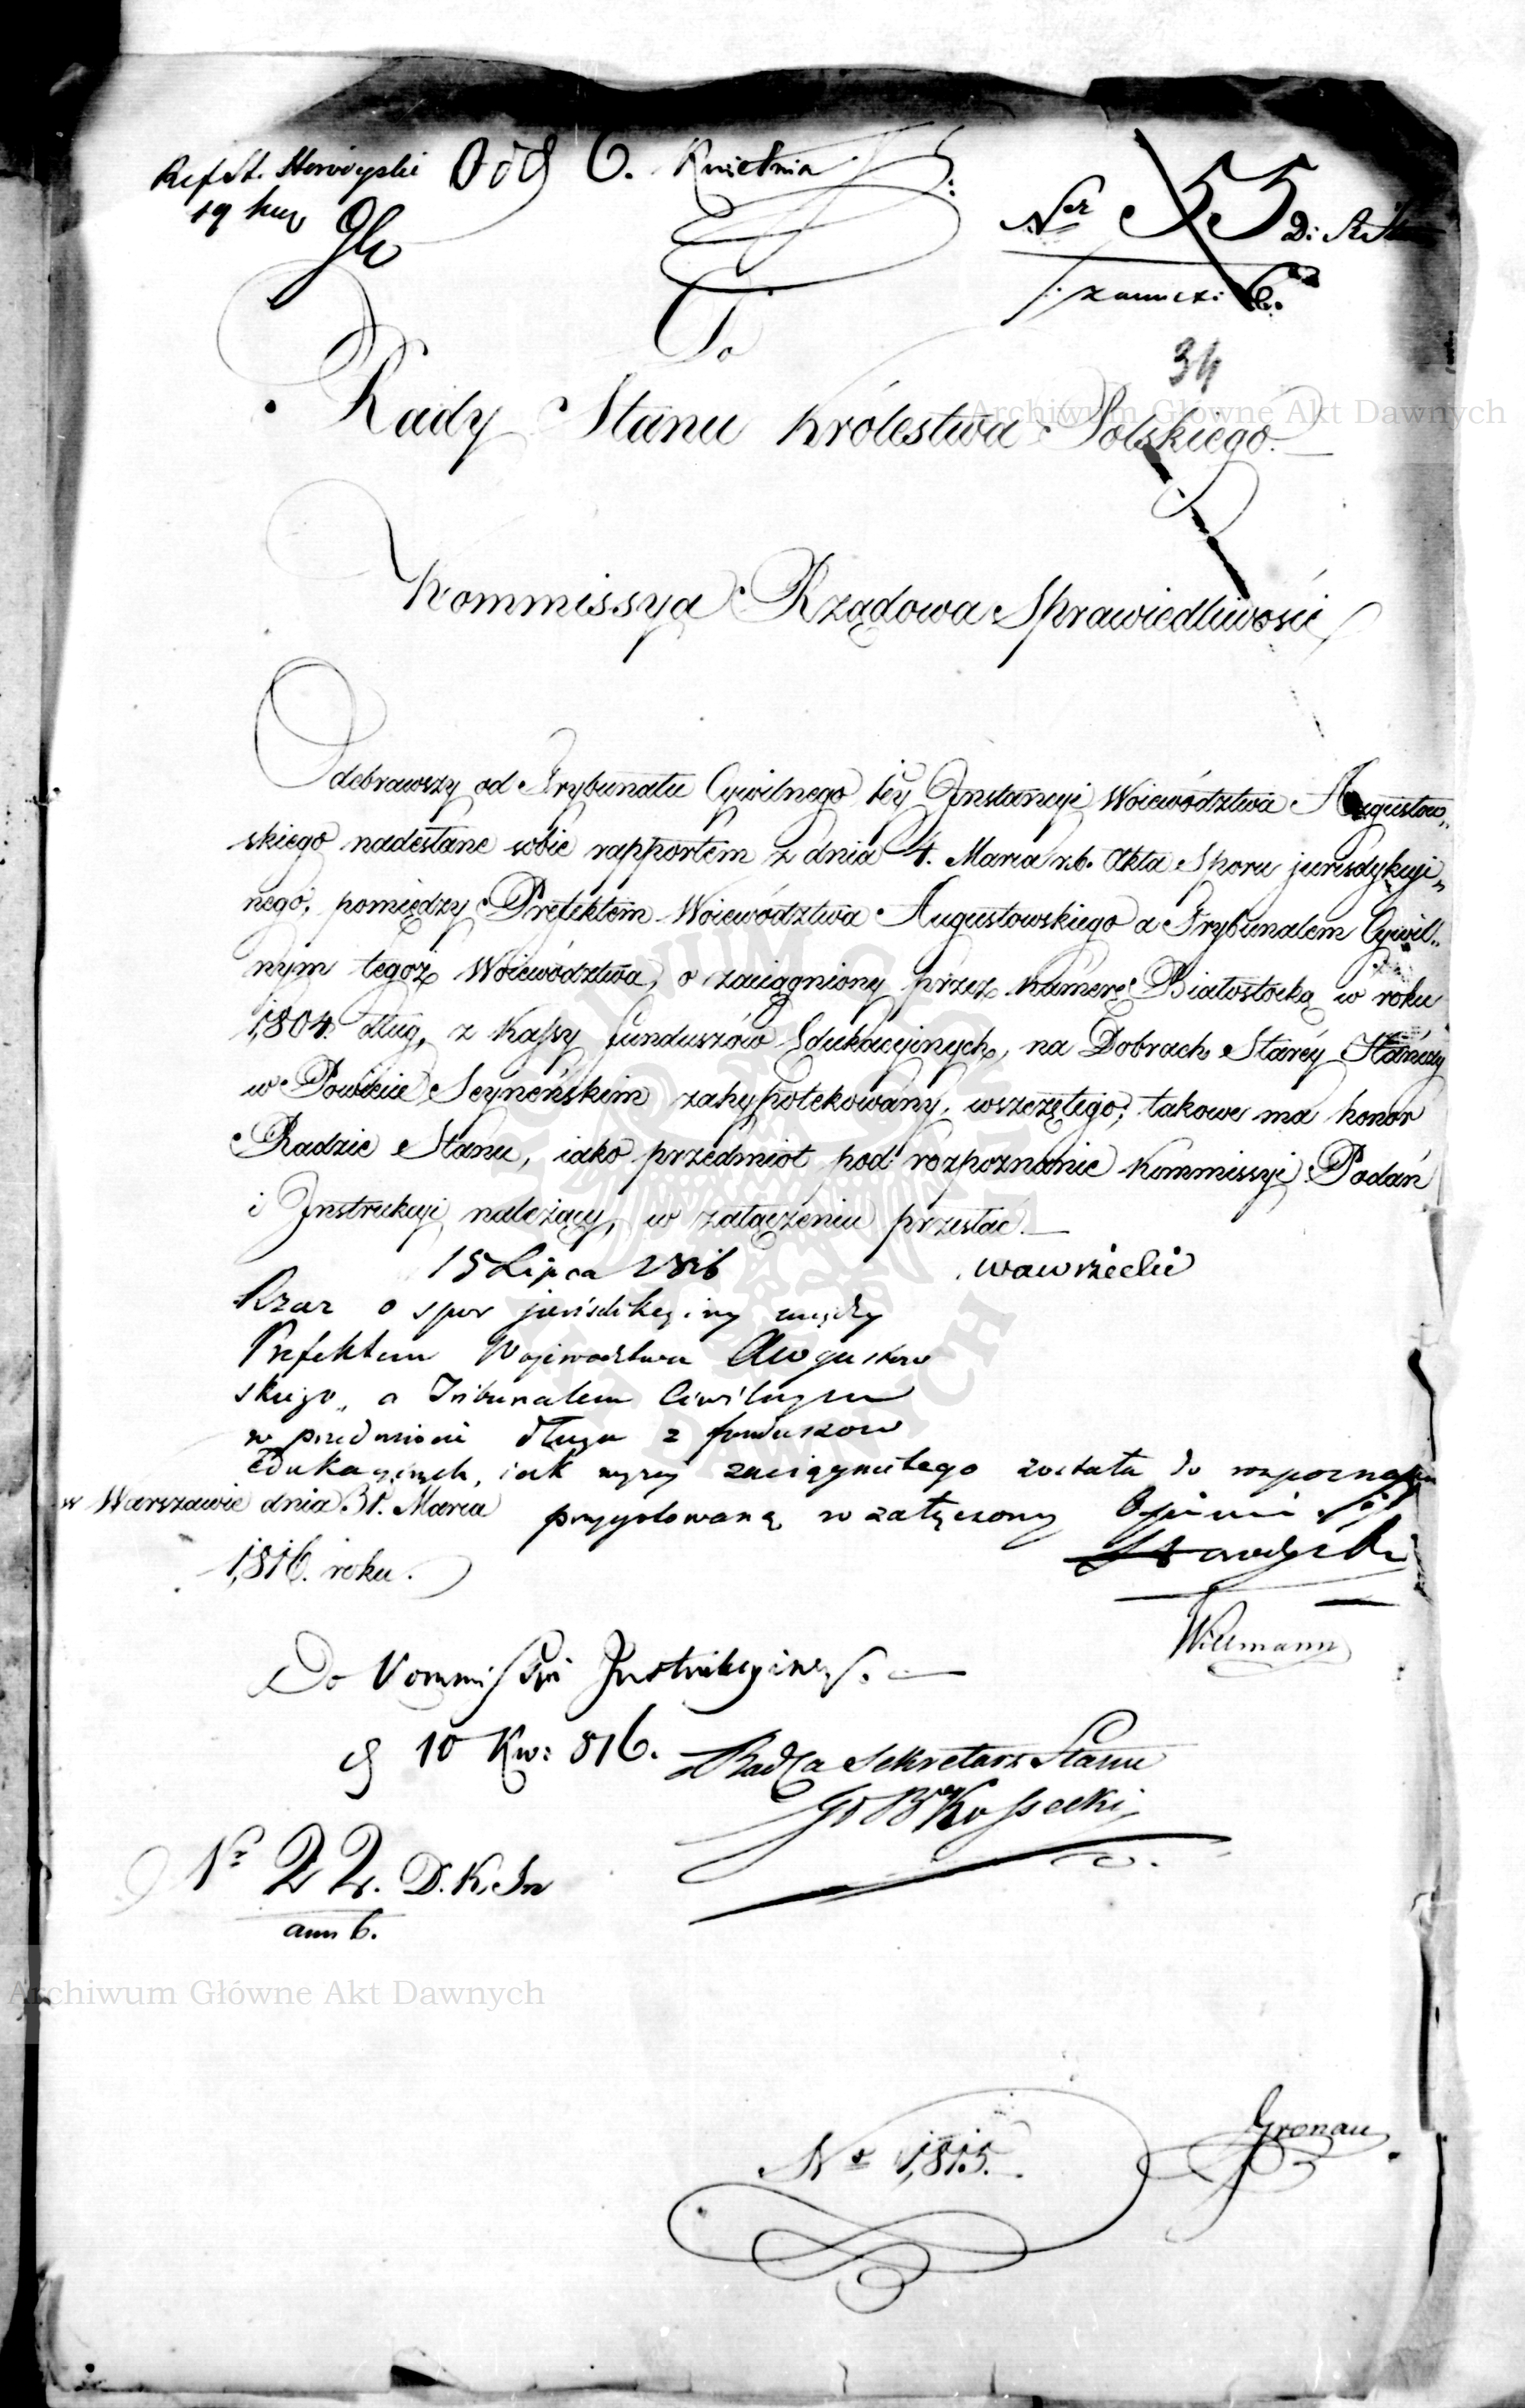 Ref. St.
19
Odd 6. Kwietnia
Ner 55 D: R:
34
Do
Rady Stanu Królestwa Polskiego.
Kommissya Rządowa Sprawiedliwości
Odebrawszy od Trybunału Cywilnego Iey Instancyi Woiewództwa Augustow„
skiego nadesłane sobie rapportem z dnia 4. Marca r.b. Akta Sporu jurisdykcyi„
nego, pomiędzy Prefektem Woiewództwa Augustowskiego a Trybunałem Cywil„
nym tegoż Woiewództwa, o zaciągniony przez Kamerę Białostocką w roku
1804. dług, z Kassy funduszów Edukacyinych, na Dobrach Staréy Hańczy
w Powiecie Seyneńskim zahypotekowány, wszczętego; takowe ma honor
Radzie Stanu, iako przedmiot pod rozpoznanie Kommissyi Podań
i Instrukcyi należący, w załączeniu przesłać.
15 Lipca 1816
Wawrzecki
Rzecz o spor jurisdikcyiny między
Prefektem Wojewodztwa Augustow
skiego, a Tribunałem Civilnym
w przedmiocie długu z funduszow
Edukacyinych, iak wyżey zaciągniętego została do rozpoznania
w Warszawie dnia 31. Marca
przygotowaną w załączoney Opinii
1,816. roku.
Willmann
Do Kommissyi Instrukcyiney.
d 10 Kw: 816.
Radca Sekretarz Stanu
Kossecki
Nr 22. D.K.In
ann 6.
Gronau
Nr 1,815.
Archiwum Główne Akt Dawnych
Archiwum Główne Akt Dawnych